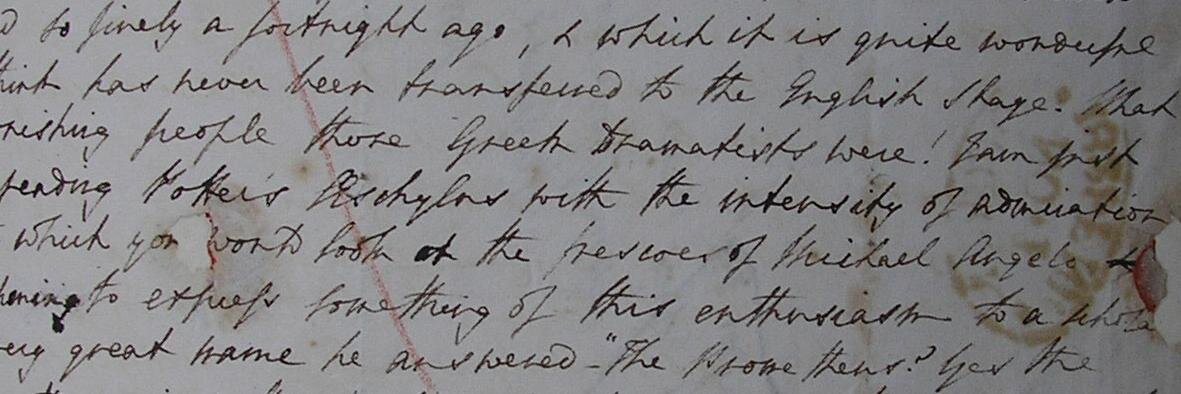 so finely a fortnight ago, & which it is quite wonderful
think has never been transferred to the English Stage. What
people those Greek Dramatists were! I am just
reading Potter's Æschylus with the intensity of admiration
which you would look at the frescoes of Michael Angelo &
to express something of this enthusiasm to a
great name he answered - "The Prometheus? Yes the